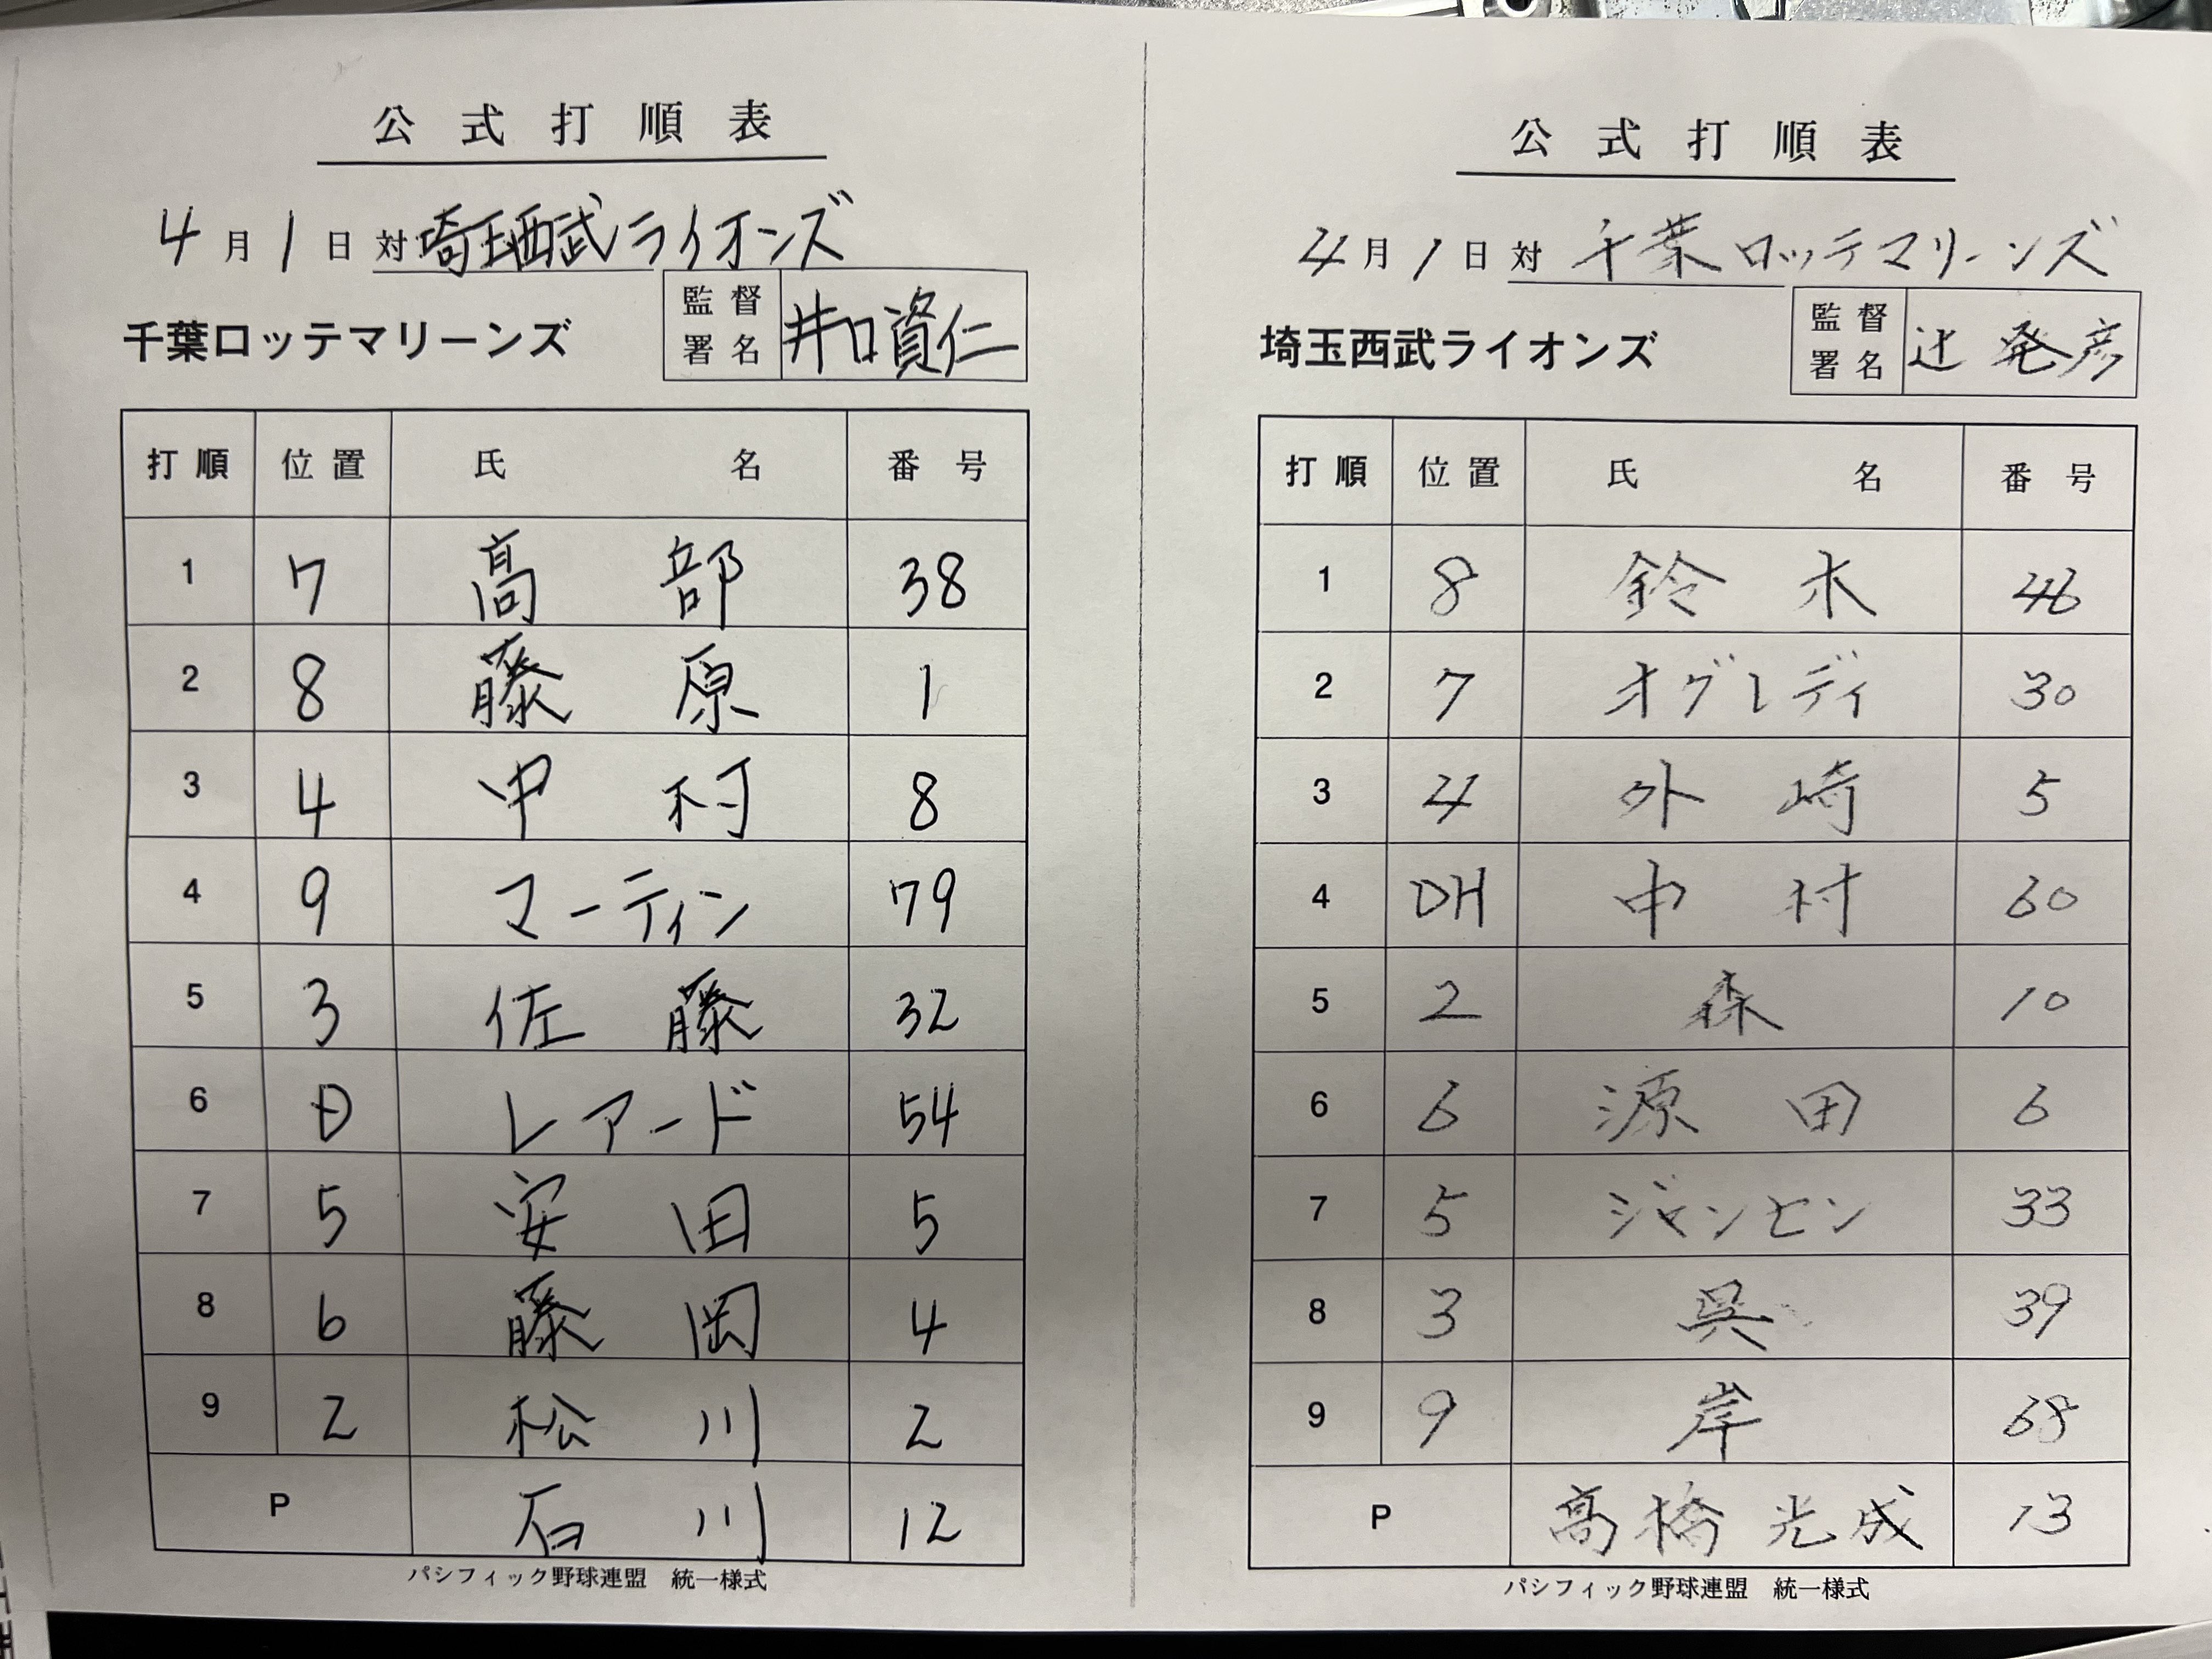 公式打順表
4月1日対埼玉西武ライオンズ
千葉ロッテマリーンズ 監督署名 井口資仁
打順 位置 氏名 番号
1 7 髙部 38
2 8 藤原 1
3 4 中村 8
4 9 マーティン 79
5 3 佐藤 32
6 D レアード 54
7 5 安田 5
8 6 藤岡 4
9 2 松川 2
P 石川 12
パシフィック野球連盟 統一様式
公式打順表
4月1日対千葉ロッテマリーンズ
埼玉西武ライオンズ 監督署名 辻発彦
打順 位置 氏名 番号
1 8 鈴木 46
2 7 オグレディ 30
3 4 外崎 5
4 DH 中村 60
5 2 森 10
6 6 源田 6
7 5 ジャンセン 33
8 3 呉 39
9 9 岸 68
P 髙橋光成 13
パシフィック野球連盟 統一様式